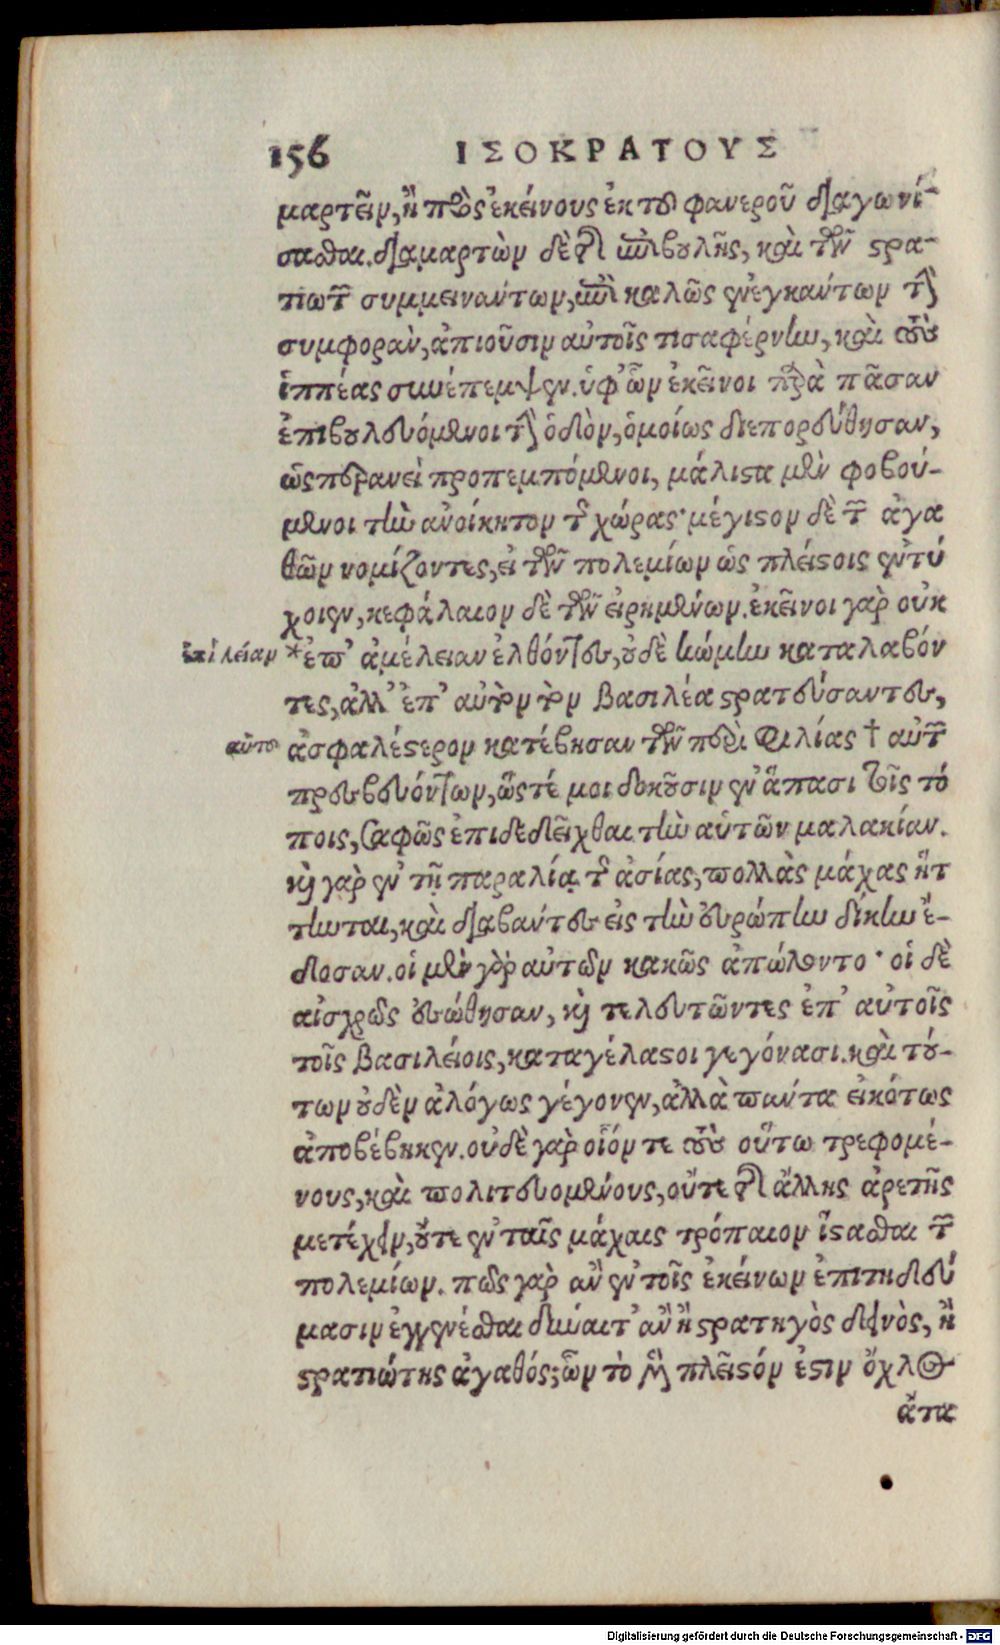 156 ΙΣΟΚΡΑΤΟΥΣ
μαρτεῖν, ἢ πρὸς ἐκείνους ἐκ τοῦ φανεροῦ διαγωνί-
σασθαι. διαμαρτὼν δὲ τῆς ἐπιβουλῆς, καὶ τῶν στρα-
τιωτῶν συμμεινάντων, καὶ καλῶς ἐνεγκάντων τὴν
συμφορὰν, ἀπιοῦσιν αὐτοῖς τισαφέρνην, καὶ τοὺς
ἱππέας συνέπεμψεν. ὑφ' ὧν ἐκεῖνοι παρὰ πᾶσαν
ἐπιβουλευόμενοι τὴν ὁδὸν, ὁμοίως διεπορεύθησαν,
ὡσπερανεὶ προπεμπόμενοι, μάλιστα μὲν φοβού-
μενοι τὴν ἀνοίκητον τῆς χώρας· μέγιστον δὲ τῶν ἀγα
θῶν νομίζοντες, εἰ τῶν πολεμίων ὡς πλείστοις ἐντύ
χοιεν, κεφάλαιον δὲ τῶν εἰρημένων. ἐκεῖνοι γὰρ οὐκ
ἐπὶ λείαν *ἐπ' ἀμέλειαν ἐλθόντες, οὐδὲ κώμην καταλαβόν
τες, ἀλλ' ἐπ' αὐτὸν τὸν βασιλέα στρατεύσαντες,
αὐτο ἀσφαλέστερον κατέβησαν τῶν περὶ φιλίας † αὐτῶν
πρεσβευόντων, ὥστέ μοι δοκοῦσιν ἐν ἅπασι τοῖς τό
ποις, σαφῶς ἐπιδεδεῖχθαι τὴν αὑτῶν μαλακίαν.
καὶ γὰρ ἐν τῇ παραλίᾳ τῆς ἀσίας, πολλὰς μάχας ἥτ
τηνται, καὶ διαβάντες εἰς τὴν εὐρώπην δίκην ἔ-
δοσαν. οἱ μὲν γὰρ αὐτῶν κακῶς ἀπώλοντο· οἱ δὲ
αἰσχρῶς ἐσώθησαν, καὶ τελευτῶντες ἐπ' αὐτοῖς
τοῖς βασιλείοις, καταγέλαστοι γεγόνασι. καὶ τού-
των οὐδὲν ἀλόγως γέγονεν, ἀλλὰ πάντα εἰκότως
ἀποβέβηκεν. οὐδὲ γὰρ οἷόν τε τοὺς οὕτω τρεφομέ-
νους, καὶ πολιτευομένους, οὔτε τῆς ἄλλης ἀρετῆς
μετέχειν, οὔτε ἐν ταῖς μάχαις τρόπαιον ἵστασθαι τῶν
πολεμίων. πῶς γὰρ ἂν ἐν τοῖς ἐκείνων ἐπιτηδεύ
μασιν ἐγγενέσθαι δύναιτ' ἂν ἢ στρατηγὸς δεινὸς, ἢ
στρατιώτης ἀγαθός; ὧν τὸ μὲν πλεῖστόν ἐστιν ὄχλος
ἄτα
Digitalisierung gefördert durch die Deutsche Forschungsgemeinschaft - DFG